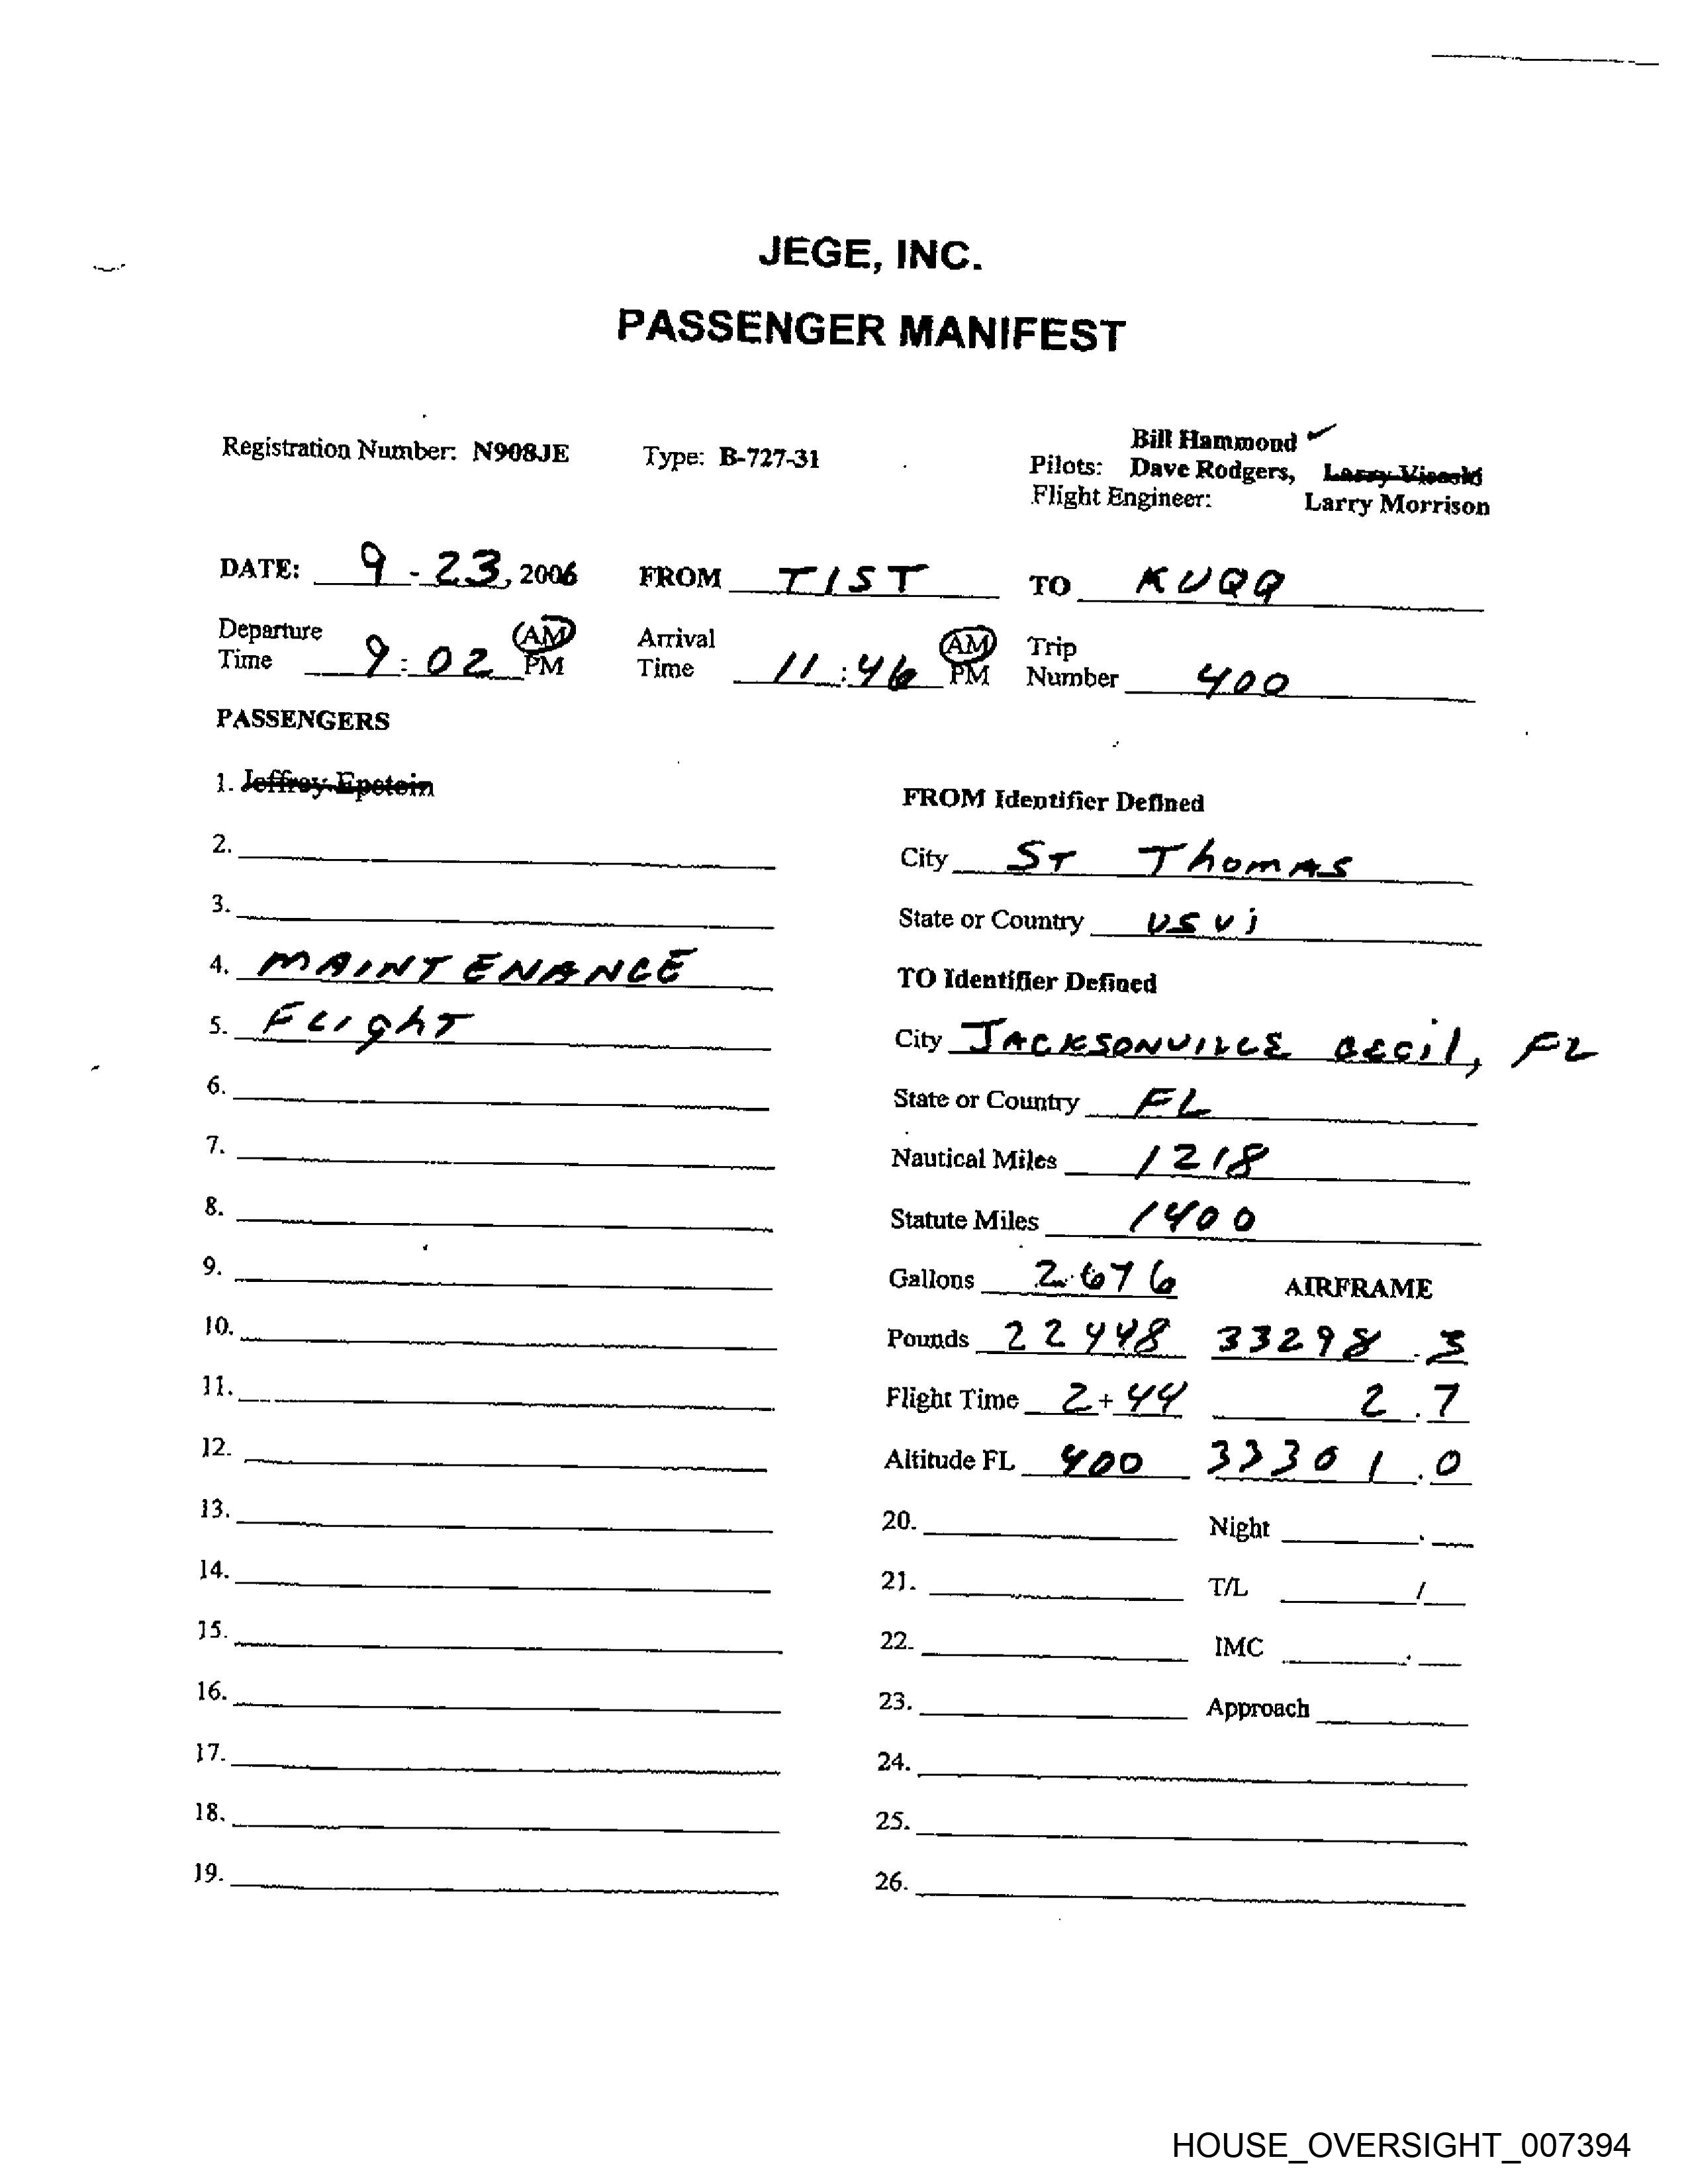 JEGE, INC.
PASSENGER MANIFEST
Registration Number: N908JE Type: B-727-31
Bill Hammond ✓
Pilots: Dave Rodgers, Larry Visoski
Flight Engineer: Larry Morrison
DATE: 9-23, 2006 FROM TIST TO KUQQ
Departure Time 9:02 AM PM Arrival Time 11:46 AM PM Trip Number 400
PASSENGERS
1. Jeffrey Epstein
2.
3.
4. MAINTENANCE
5. FLIghT
6.
7.
8.
9.
10.
11.
12.
13.
14.
15.
16.
17.
18.
19.
FROM Identifier Defined
City ST ThomAS
State or Country USVi
TO Identifier Defined
City JACKSONVILLE CECil, FL
State or Country FL
Nautical Miles 1218
Statute Miles 1400
Gallons 2676 AIRFRAME
Pounds 22448 33298.3
Flight Time 2+44 2.7
Altitude FL 400 33301.0
20. Night .
21. T/L /
22. IMC .
23. Approach
24.
25.
26.
HOUSE_OVERSIGHT_007394